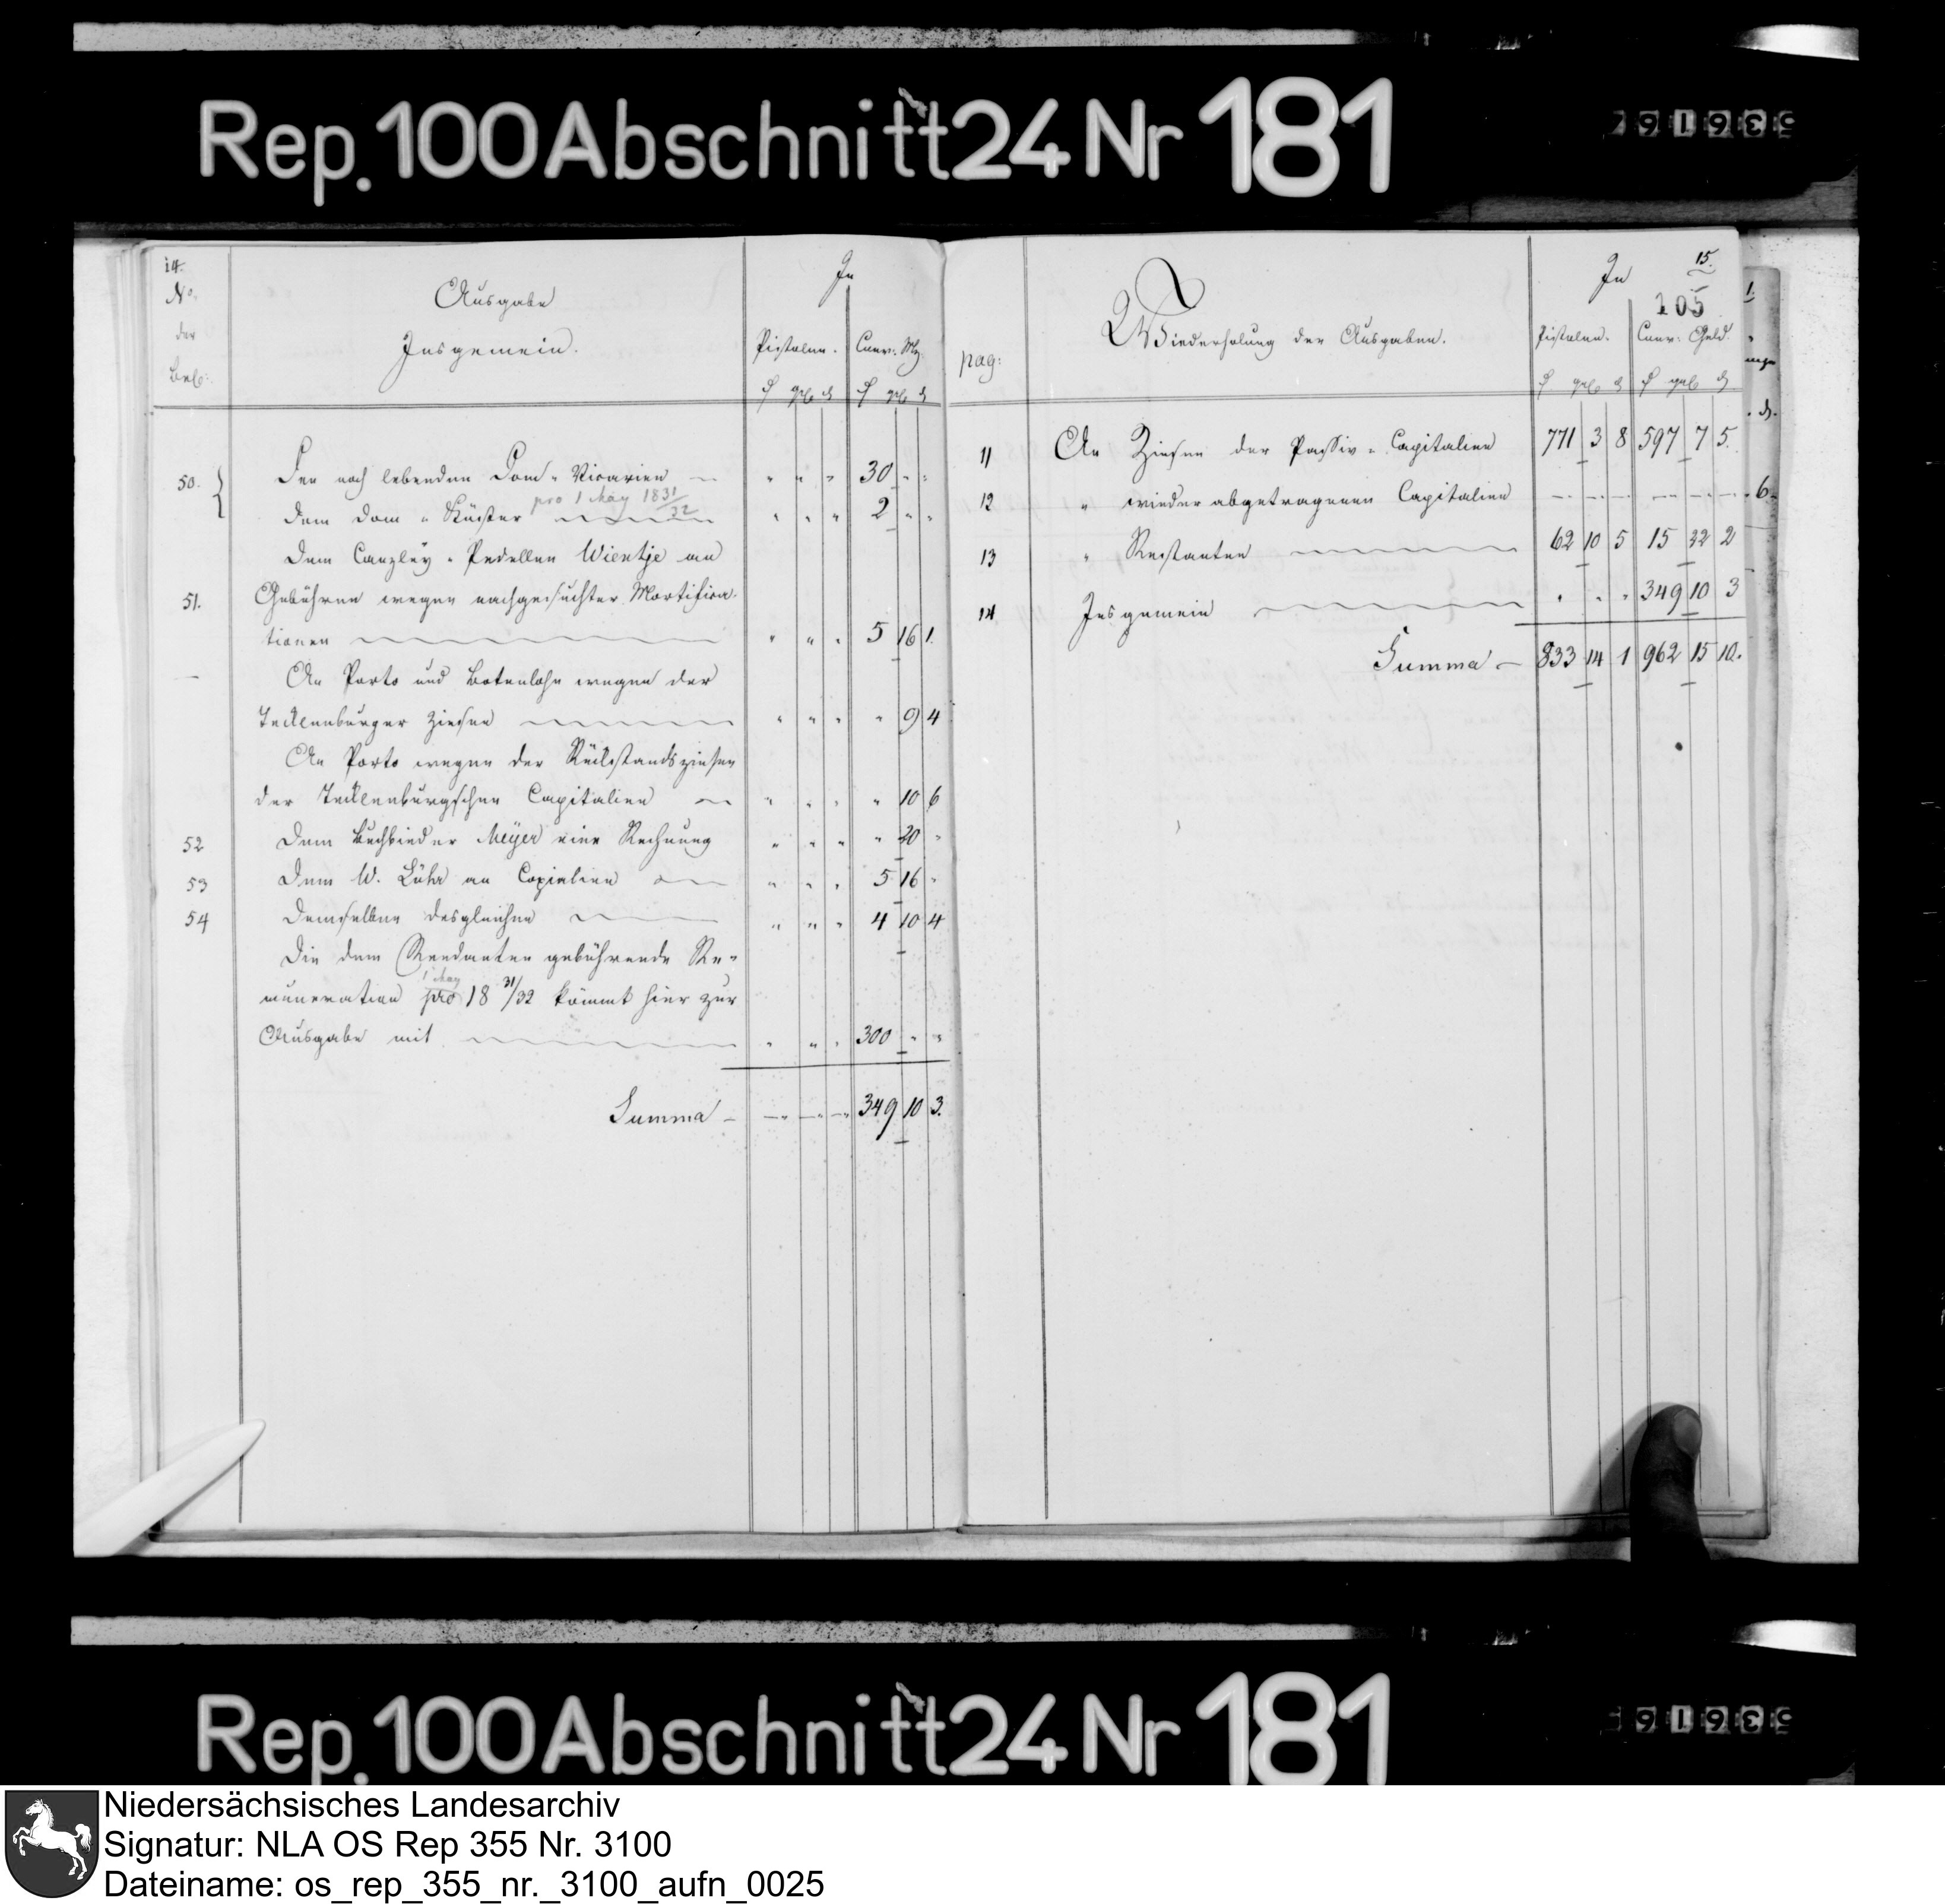 Rep. 100 Abschnitt 24 Nr 181
14.
No.
der
Bel:
Ausgabe
Insgemein.
In
Pistolen. Conv: Mz
₰ ggl ₰ ₰ ggl ₰
50. Den noch lebenden Dom-Vicarien " " " 30 " "
pro 1 May 1831/32
Dem Dom-Küster " " " 2 " "
Dem Canzley-Pedellen Wientje an
51. Gebühren wegen nachgesuchter Mortifica-
tionen " " " 5 16 1.
— An Porto und Botenlohn wegen der
Tecklenburger Zinsen " " " " 9 4
An Porto wegen der Rückstandszinsen
der Tecklenburgschen Capitalien " " " " 10 6
52 Dem Buchbinder Meyer eine Rechnung " " " " 20 "
53 Dem W. Lühr an Copialien " " " 5 16 "
54 Demselben desgleichen " " " 4 10 4
Die dem Rendanten gebührende Re-
1 May
muneration pro 18 31/32 kömmt hier zur
Ausgabe mit " " " 300 " "
Summa — — — — 349 10 3.
15.
105
pag:
Wiederholung der Ausgaben.
In
Pistolen. Conv: Geld
₰ ggl ₰ ₰ ggl ₰
11 An Zinsen der Passiv-Capitalien 771 3 8 597 7 5.
12 " wieder abgetragenen Capitalien — — — — — —
13 " Restanten 62 10 5 15 22 2
14 Insgemein " " " 349 10 3
Summa — 833 14 1 962 15 10.
Rep. 100 Abschnitt 24 Nr 181
Niedersächsisches Landesarchiv
Signatur: NLA OS Rep 355 Nr. 3100
Dateiname: os_rep_355_nr._3100_aufn_0025